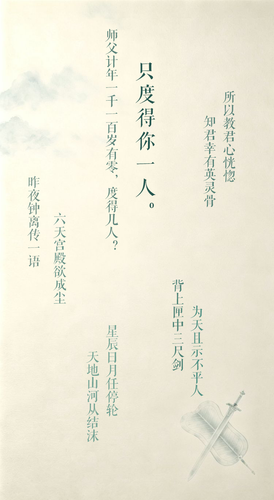 所以教君心恍惚
知君幸有英灵骨
只度得你一人。
师父计年一千一百岁有零，度得几人？
昨夜钟离传一语
六天宫殿欲成尘
为天且示不平人
背上匣中三尺剑
星辰日月任停轮
天地山河从结沫